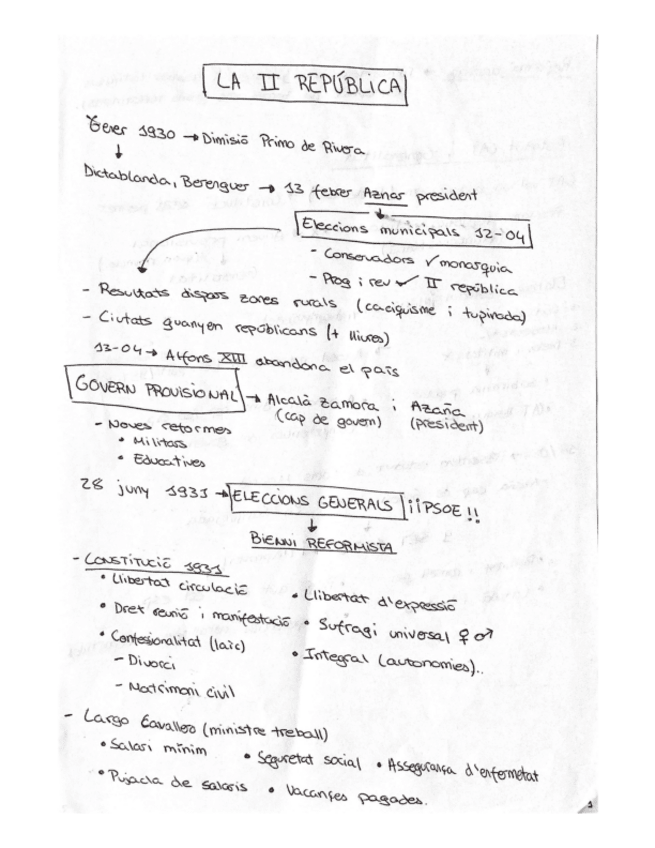 LA II REPÚBLICA
Gener 1930 → Dimisió Primo de Rivera
↓
Dictablanda, Berenguer → 13 febrer Aznar president
↓
Eleccions municipals 12-04
- Conservadors ✓ monarquia
- Prog i rev ✓ II república
- Resultats dispars zones rurals (caciquisme i tupinada)
- Ciutats guanyen repúblicans (+ lliures)
13-04 → Alfons XIII abandona el país
GOVERN PROVISIONAL → Alcalà Zamora i Azaña
(cap de govern) (president)
- Noves reformes
• Militars
• Educatives
28 juny 1931 → ELECCIONS GENERALS ¡¡PSOE!!
↓
BIENNI REFORMISTA
- CONSTITUCIÓ 1931
• Llibertat circulació • Llibertat d'expressió
• Dret reunió i manifestació • Sufragi universal ♀ ♂
• Confesionalitat (laic) • Integral (autonomies)..
- Divorci
- Matrimoni civil
- Largo Cavallero (ministre treball)
• Salari mínim • Seguretat social • Assegurança d'enfermetat
• Pujada de salaris • Vacances pagades.
1